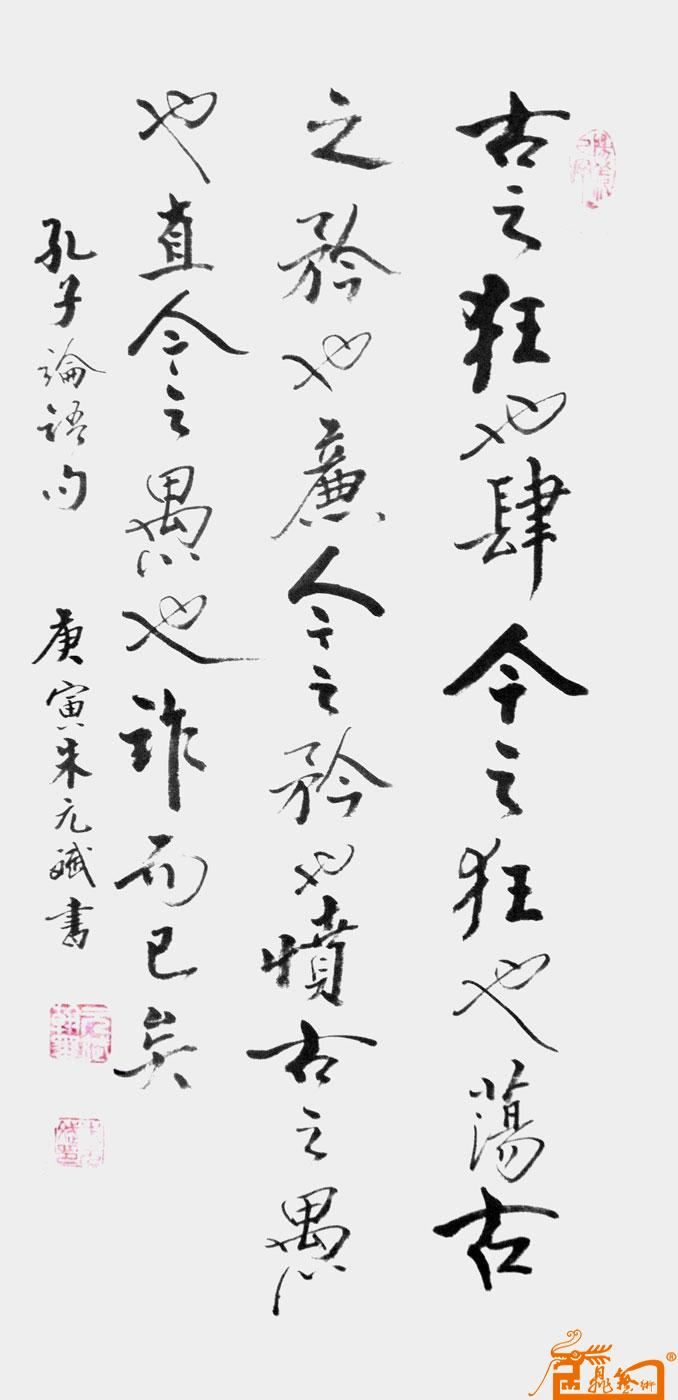 古之狂也肆今之狂也蕩古
之矜也廉今之矜也憤古之愚
也直今之愚也詐而已矣
孔子論語句 庚寅朱元斌書